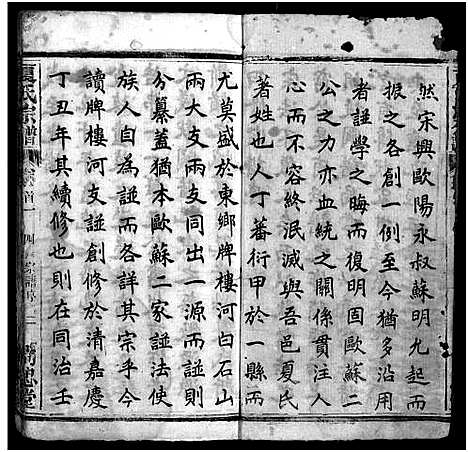 然宋興歐陽永叔蘇明允起而
振之各創一例至今猶多沿用
者譜學之晦而復明固歐蘇二
公之力亦血統之關係貫注人
心而不容終泯滅與吾邑夏氏
著姓也人丁蕃衍甲於一縣而
尤莫盛於東鄉牌樓河白石山
兩大支兩支同出一源而譜則
分纂蓋猶本歐蘇二家譜法使
族人自為譜而各詳其宗乎今
讀牌樓河支譜創修於清嘉慶
丁丑年其續修也則在同治壬
夏氏宗譜